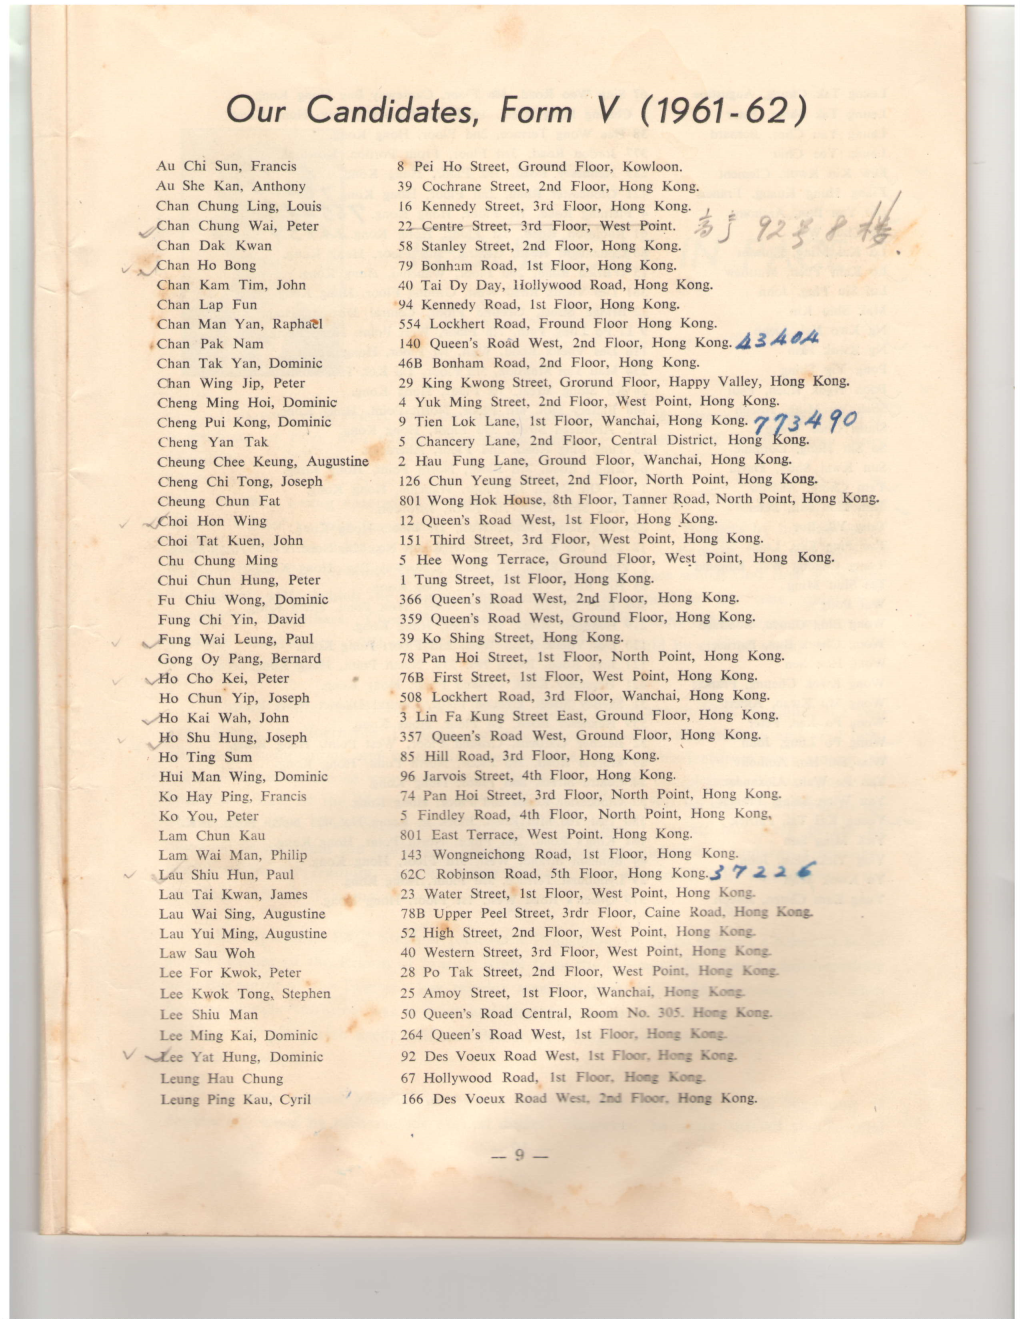 Our Candidates, Form V (1961-62)
Au Chi Sun, Francis 8 Pei Ho Street, Ground Floor, Kowloon.
Au She Kan, Anthony 39 Cochrane Street, 2nd Floor, Hong Kong.
Chan Chung Ling, Louis 16 Kennedy Street, 3rd Floor, Hong Kong.
Chan Chung Wai, Peter 22 Centre Street, 3rd Floor, West Point. 92号8楼
Chan Dak Kwan 58 Stanley Street, 2nd Floor, Hong Kong.
Chan Ho Bong 79 Bonham Road, 1st Floor, Hong Kong.
Chan Kam Tim, John 40 Tai Dy Day, Hollywood Road, Hong Kong.
Chan Lap Fun 94 Kennedy Road, 1st Floor, Hong Kong.
Chan Man Yan, Raphael 554 Lockhert Road, Fround Floor Hong Kong.
Chan Pak Nam 140 Queen's Road West, 2nd Floor, Hong Kong. 43404
Chan Tak Yan, Dominic 46B Bonham Road, 2nd Floor, Hong Kong.
Chan Wing Jip, Peter 29 King Kwong Street, Grorund Floor, Happy Valley, Hong Kong.
Cheng Ming Hoi, Dominic 4 Yuk Ming Street, 2nd Floor, West Point, Hong Kong.
Cheng Pui Kong, Dominic 9 Tien Lok Lane, 1st Floor, Wanchai, Hong Kong. 773490
Cheng Yan Tak 5 Chancery Lane, 2nd Floor, Central District, Hong Kong.
Cheung Chee Keung, Augustine 2 Hau Fung Lane, Ground Floor, Wanchai, Hong Kong.
Cheng Chi Tong, Joseph 126 Chun Yeung Street, 2nd Floor, North Point, Hong Kong.
Cheung Chun Fat 801 Wong Hok House, 8th Floor, Tanner Road, North Point, Hong Kong.
Choi Hon Wing 12 Queen's Road West, 1st Floor, Hong Kong.
Choi Tat Kuen, John 151 Third Street, 3rd Floor, West Point, Hong Kong.
Chu Chung Ming 5 Hee Wong Terrace, Ground Floor, West Point, Hong Kong.
Chui Chun Hung, Peter 1 Tung Street, 1st Floor, Hong Kong.
Fu Chiu Wong, Dominic 366 Queen's Road West, 2nd Floor, Hong Kong.
Fung Chi Yin, David 359 Queen's Road West, Ground Floor, Hong Kong.
Fung Wai Leung, Paul 39 Ko Shing Street, Hong Kong.
Gong Oy Pang, Bernard 78 Pan Hoi Street, 1st Floor, North Point, Hong Kong.
Ho Cho Kei, Peter 76B First Street, 1st Floor, West Point, Hong Kong.
Ho Chun Yip, Joseph 508 Lockhert Road, 3rd Floor, Wanchai, Hong Kong.
Ho Kai Wah, John 3 Lin Fa Kung Street East, Ground Floor, Hong Kong.
Ho Shu Hung, Joseph 357 Queen's Road West, Ground Floor, Hong Kong.
Ho Ting Sum 85 Hill Road, 3rd Floor, Hong Kong.
Hui Man Wing, Dominic 96 Jarvois Street, 4th Floor, Hong Kong.
Ko Hay Ping, Francis 74 Pan Hoi Street, 3rd Floor, North Point, Hong Kong.
Ko You, Peter 5 Findley Road, 4th Floor, North Point, Hong Kong,
Lam Chun Kau 801 East Terrace, West Point. Hong Kong.
Lam Wai Man, Philip 143 Wongneichong Road, 1st Floor, Hong Kong.
Lau Shiu Hun, Paul 62C Robinson Road, 5th Floor, Hong Kong. 37226
Lau Tai Kwan, James 23 Water Street, 1st Floor, West Point, Hong Kong.
Lau Wai Sing, Augustine 78B Upper Peel Street, 3rdr Floor, Caine Road, Hong Kong.
Lau Yui Ming, Augustine 52 High Street, 2nd Floor, West Point, Hong Kong.
Law Sau Woh 40 Western Street, 3rd Floor, West Point, Hong Kong.
Lee For Kwok, Peter 28 Po Tak Street, 2nd Floor, West Point, Hong Kong.
Lee Kwok Tong, Stephen 25 Amoy Street, 1st Floor, Wanchai, Hong Kong.
Lee Shiu Man 50 Queen's Road Central, Room No. 305. Hong Kong.
Lee Ming Kai, Dominic 264 Queen's Road West, 1st Floor, Hong Kong.
Lee Yat Hung, Dominic 92 Des Voeux Road West, 1st Floor, Hong Kong.
Leung Hau Chung 67 Hollywood Road, 1st Floor, Hong Kong.
Leung Ping Kau, Cyril 166 Des Voeux Road West, 2nd Floor, Hong Kong.
— 9 —